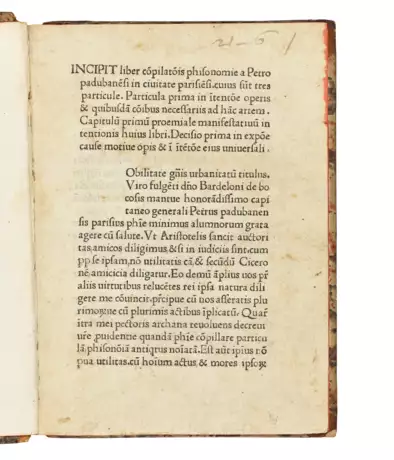 21-6 /
INCIPIT liber cōpilatōis phisonomie a Petro
padubanēsi in ciuitate parisiēsi.cuius sūt tres
particule. Particula prima in ītentōe operis
& quibusdā cōibus necessariis ad hāc artem.
Capitulū primū proemiale manifestatiuū in
tentionis huius libri. Decisio prima in expōe
cause motiue opis & ī ītētōe eius uniuersali.
Obilitate gñis urbanitatū titulus.
Viro fulgēti dño Bardeloni de bo
cosis mantue honorādissimo capi
taneo generali Petrus padubanen
sis parisius phie minimus alumnorum grata
agere cū salute. Vt Aristotelis sancit auctori
tas,amicos diligimus,&si in iudiciis sint.cum
pp se ipsam,nō utilitatis cā,& secūdū Cicero
nē amicicia diligatur. Eo demū āplius uos pr
aliis uirtutibus relucētes rei ipsa natura dili
gere me cōuincit.prēcipue cū uos asseratis plu
rimoꝝue cū plurimis actibus īplicatū. Quar
ītra mei pectoris archana reuoluens decreui
ur̄e puidentie quandā phie cōpillare particu
lā,phisonōiā antiqtus noīatā.Est aūt ipius nō
pua utilitas.cū hoīum actus & mores ipsoꝝ